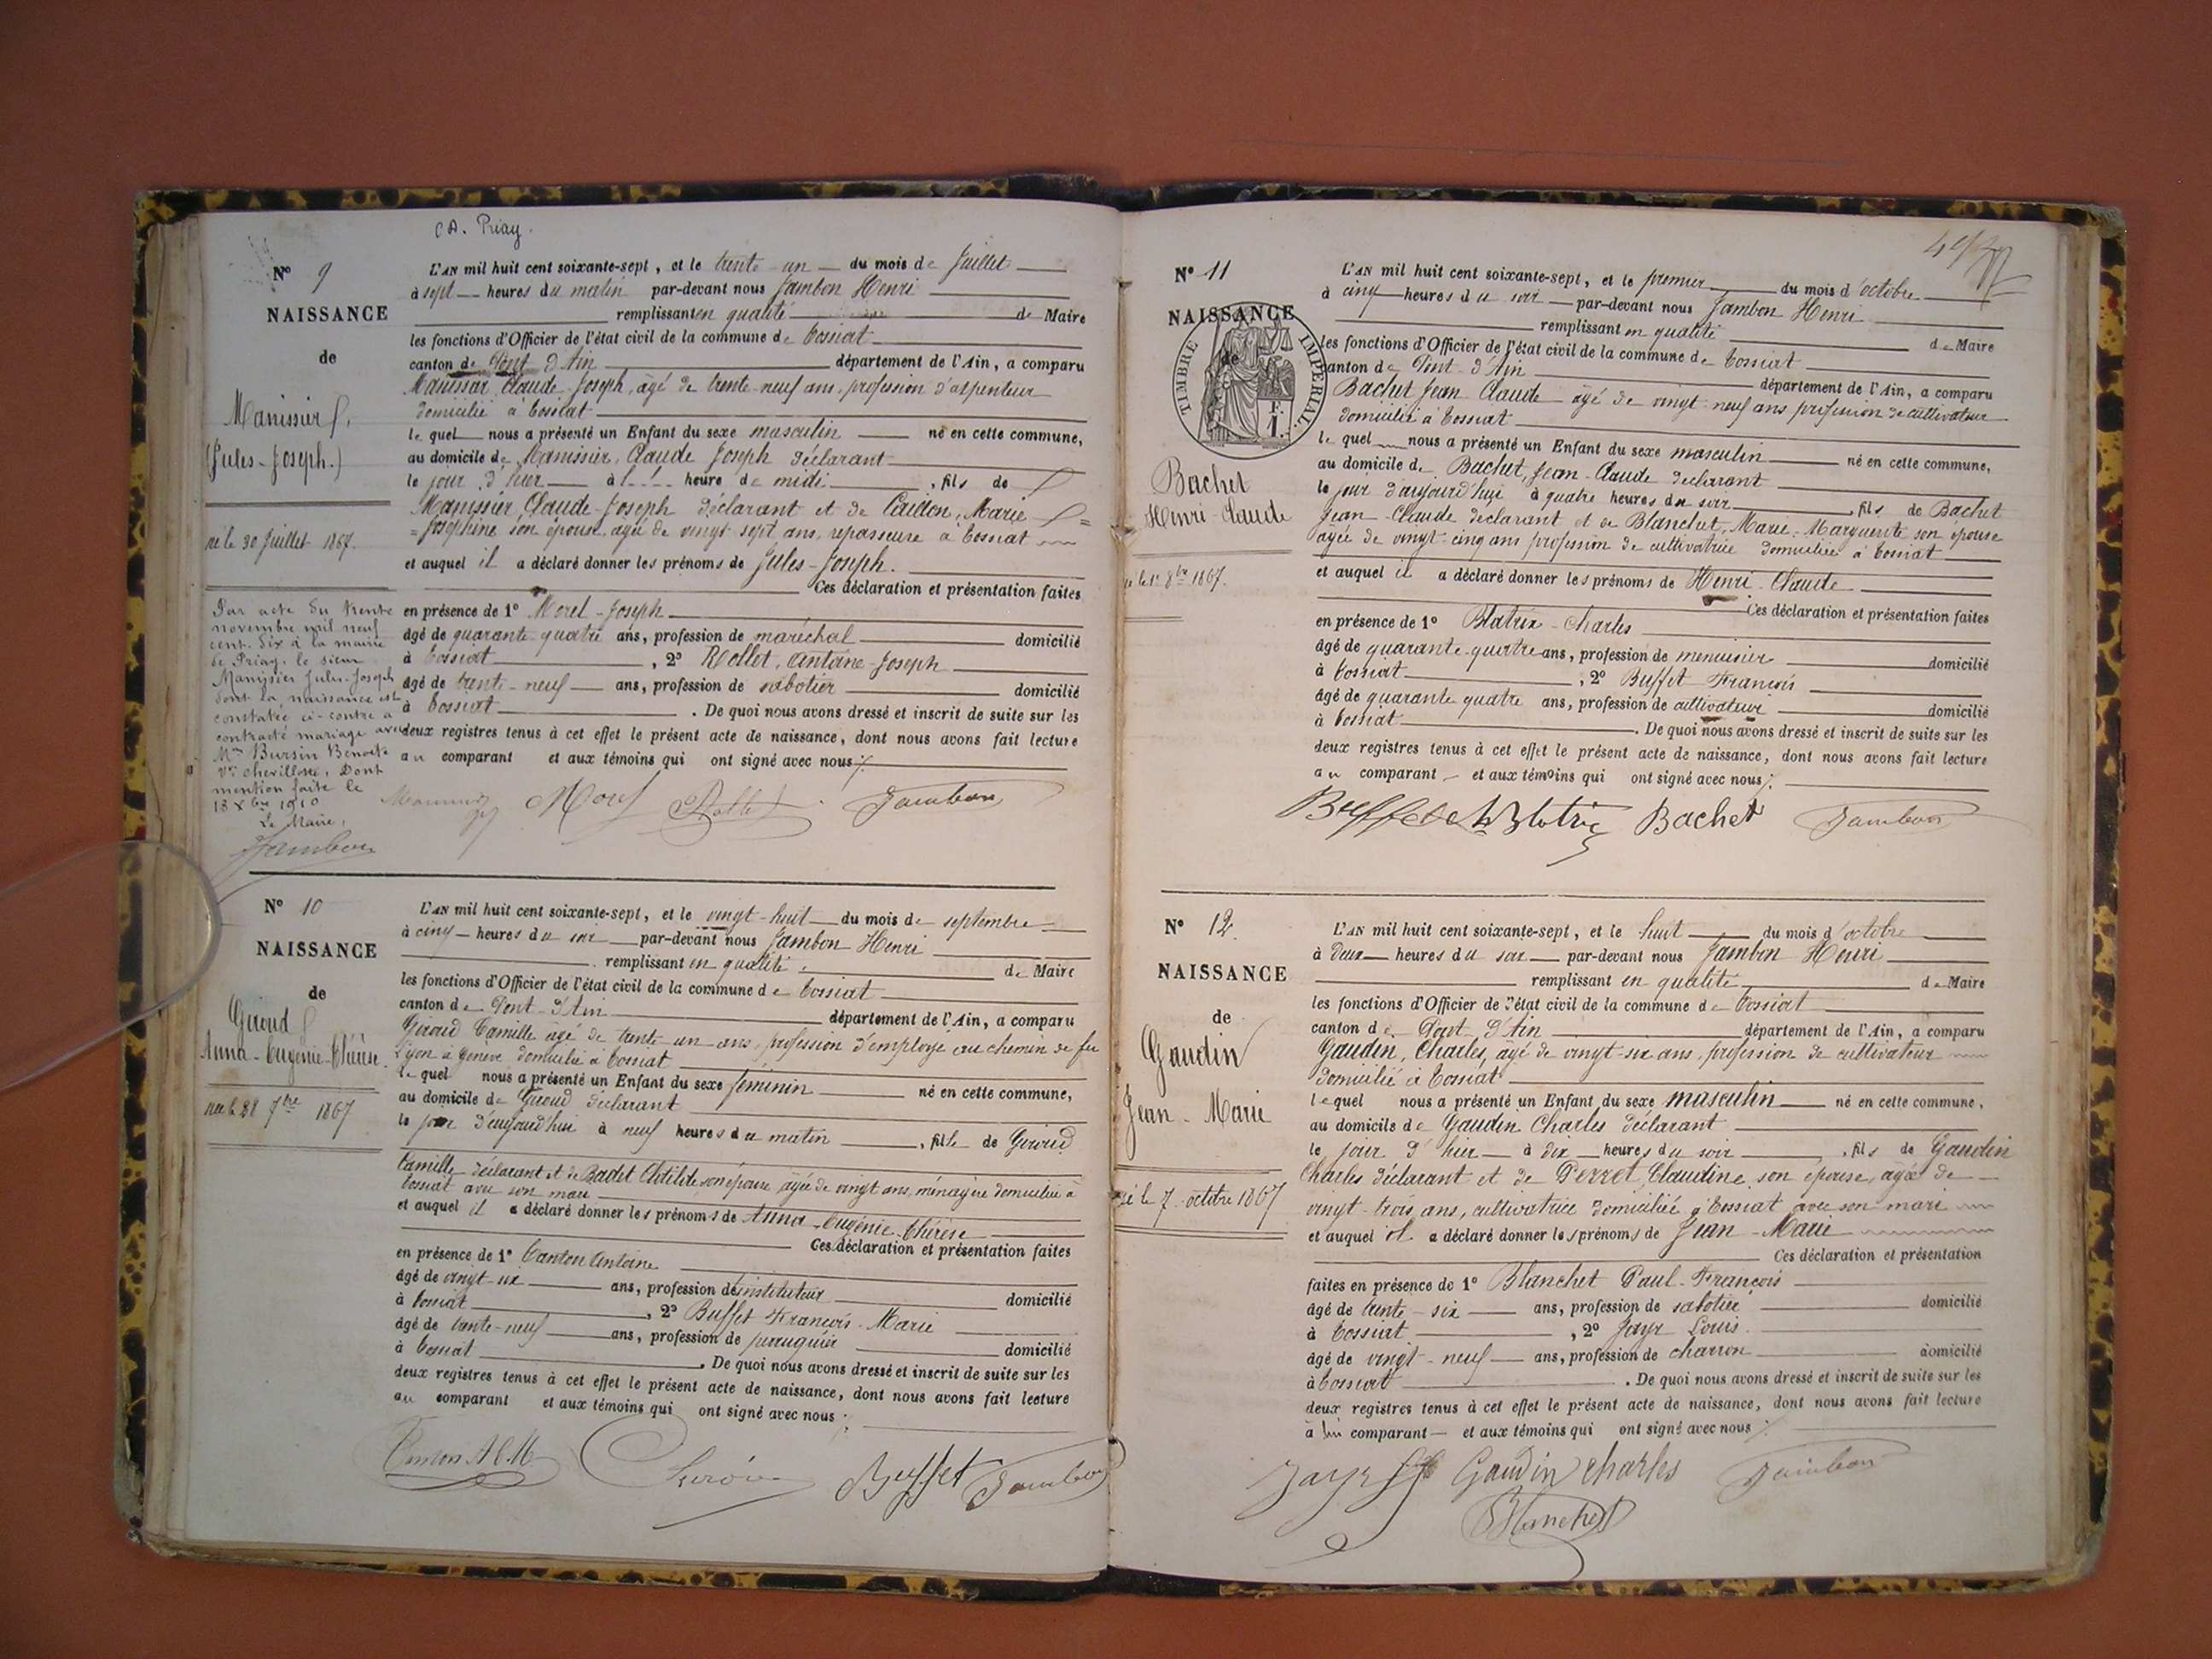 CA. Priay.
N° 9
NAISSANCE
de
Manissier
(Jules-Joseph.)
né le 30 Juillet 1867.
Par acte du trente
novembre mil neuf
cent dix à la mairie
de Priay, le sieur
Manissier Jules-Joseph
dont la naissance est
constatée ci-contre a
contracté mariage avec
Mme Bursin Benoite
Vve Chevillotte, Dont
mention faite le
18 Xbre 1910
Le Maire,
Jambon
L'AN mil huit cent soixante-sept, et le trente-un du mois de Juillet
à sept heures du matin par-devant nous Jambon Henri
remplissant en qualité de Maire
les fonctions d'Officier de l'état civil de la commune de Tossiat
canton de Pont d'Ain département de l'Ain, a comparu
Manissier Claude-Joseph, âgé de trente-neuf ans, profession d'arpenteur
domicilié à Tossiat
lequel nous a présenté un Enfant du sexe masculin né en cette commune,
au domicile de Manissier, Claude Joseph déclarant
le jour d'hier à l heure de midi, fils de
Manissier Claude-Joseph déclarant et de Marie
=Joséphine son épouse, âgée de vingt-sept ans, repasseuse à Tossiat
et auquel il a déclaré donner les prénoms de Jules-Joseph.
Ces déclaration et présentation faites
en présence de 1° Morel-Joseph
âgé de quarante-quatre ans, profession de maréchal domicilié
à Tossiat, 2° Rollet, Antoine-Joseph
âgé de trente-neuf ans, profession de sabotier domicilié
à Tossiat. De quoi nous avons dressé et inscrit de suite sur les
deux registres tenus à cet effet le présent acte de naissance, dont nous avons fait lecture
au comparant et aux témoins qui ont signé avec nous
Morel Rollet Jambon
N° 10
NAISSANCE
de
Giroud
Anna-Eugénie-Thérèse.
née le 28 7bre 1867
L'AN mil huit cent soixante-sept, et le vingt-huit du mois de septembre
à cinq heures du soir par-devant nous Jambon Henri
remplissant en qualité de Maire
les fonctions d'Officier de l'état civil de la commune de Tossiat
canton de Pont-d'Ain département de l'Ain, a comparu
Giroud Camille âgé de trente-un ans, profession d'employé au chemin de fer
Lyon à Genève domicilié à Tossiat
lequel nous a présenté un Enfant du sexe féminin né en cette commune,
au domicile de Giroud déclarant
le jour d'aujourd'hui à neuf heures du matin, fille de Giroud
Camille déclarant et de Badet Clotilde, son épouse, âgée de vingt ans, ménagère domiciliée à
Tossiat avec son mari
et auquel il a déclaré donner les prénoms de Anna-Eugénie-Thérèse
Ces déclaration et présentation faites
en présence de 1° Canton Antoine
âgé de vingt-six ans, profession d'instituteur domicilié
à Tossiat, 2° Buffet François-Marie
âgé de trente-neuf ans, profession de perruquier domicilié
à Tossiat. De quoi nous avons dressé et inscrit de suite sur les
deux registres tenus à cet effet le présent acte de naissance, dont nous avons fait lecture
au comparant et aux témoins qui ont signé avec nous;
Buffet Jambon
N° 11
NAISSANCE
de
TIMBRE IMPERIAL.
F.
1.
Bachet
Henri-Claude
né le 1er 8bre 1867.
L'AN mil huit cent soixante-sept, et le premier du mois d'octobre
à cinq heures du soir par-devant nous Jambon Henri
remplissant en qualité de Maire
les fonctions d'Officier de l'état civil de la commune de Tossiat
canton de Pont-d'Ain département de l'Ain, a comparu
Bachet Jean Claude âgé de vingt-neuf ans profession de cultivateur
domicilié à Tossiat
lequel nous a présenté un Enfant du sexe masculin né en cette commune,
au domicile de Bachet, Jean-Claude déclarant
le jour d'aujourd'hui à quatre heures du soir, fils de Bachet
Jean-Claude déclarant et de Blanchet, Marie-Marguerite son épouse
âgée de vingt-cinq ans profession de cultivatrice domiciliée à Tossiat
et auquel il a déclaré donner les prénoms de Henri-Claude
Ces déclaration et présentation faites
en présence de 1° Blatrix-Charles
âgé de quarante-quatre ans, profession de menuisier domicilié
à Tossiat, 2° Buffet François
âgé de quarante quatre ans, profession de cultivateur domicilié
à Tossiat. De quoi nous avons dressé et inscrit de suite sur les
deux registres tenus à cet effet le présent acte de naissance, dont nous avons fait lecture
au comparant et aux témoins qui ont signé avec nous;
Buffet Blatrix Bachet Jambon
N° 12.
NAISSANCE
de
Gaudin
Jean-Marie
né le 7 octobre 1867
L'AN mil huit cent soixante-sept, et le huit du mois d'octobre
à deux heures du soir par-devant nous Jambon Henri
remplissant en qualité de Maire
les fonctions d'Officier de l'état civil de la commune de Tossiat
canton de Pont d'Ain département de l'Ain, a comparu
Gaudin, Charles, âgé de vingt-six ans, profession de cultivateur
domicilié à Tossiat
lequel nous a présenté un Enfant du sexe masculin né en cette commune,
au domicile de Gaudin Charles déclarant
le jour d'hier à dix heures du soir, fils de Gaudin
Charles déclarant et de Perret, Claudine son épouse, âgée de
vingt-trois ans, cultivatrice domiciliée à Tossiat avec son mari
et auquel il a déclaré donner les prénoms de Jean-Marie
Ces déclaration et présentation
faites en présence de 1° Blanchet Paul-François
âgé de trente-six ans, profession de sabotier domicilié
à Tossiat, 2° Jayr Louis
âgé de vingt-neuf ans, profession de charron domicilié
à Tossiat. De quoi nous avons dressé et inscrit de suite sur les
deux registres tenus à cet effet le présent acte de naissance, dont nous avons fait lecture
à lui comparant et aux témoins qui ont signé avec nous;
Jayr Gaudin charles Jambon
Blanchet